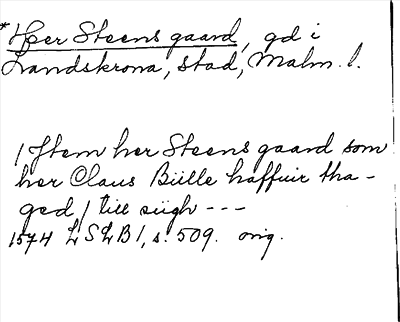 *Her Steens gaard, gd i
Landskrona, stad, Malm. l.
/ Jtem her Steens gaard som
her Claus Bülle haffuir tha-
ged / till siigh ---
1574 LSLB 1, s. 509. orig.